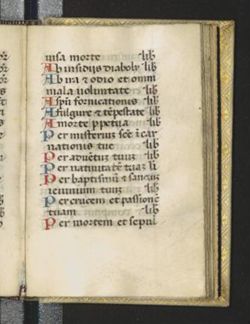 uisa morte lib
Ab insidijs diaboly lib
Ab ira & odio et omni
mala uoluntate lib
A spũ fornicationis lib
A fulgure & tẽpestate lib
A morte ppetua lib
Per misteriuz sce icar
nationis tue lib
Per aduẽtuz tuuz lib
Per natiuitatẽ tuaz li
Per baptismũ & sanctuz
ieiunium tuuz lib
Per crucem et passionẽ
tuam lib
Per mortem et sepul